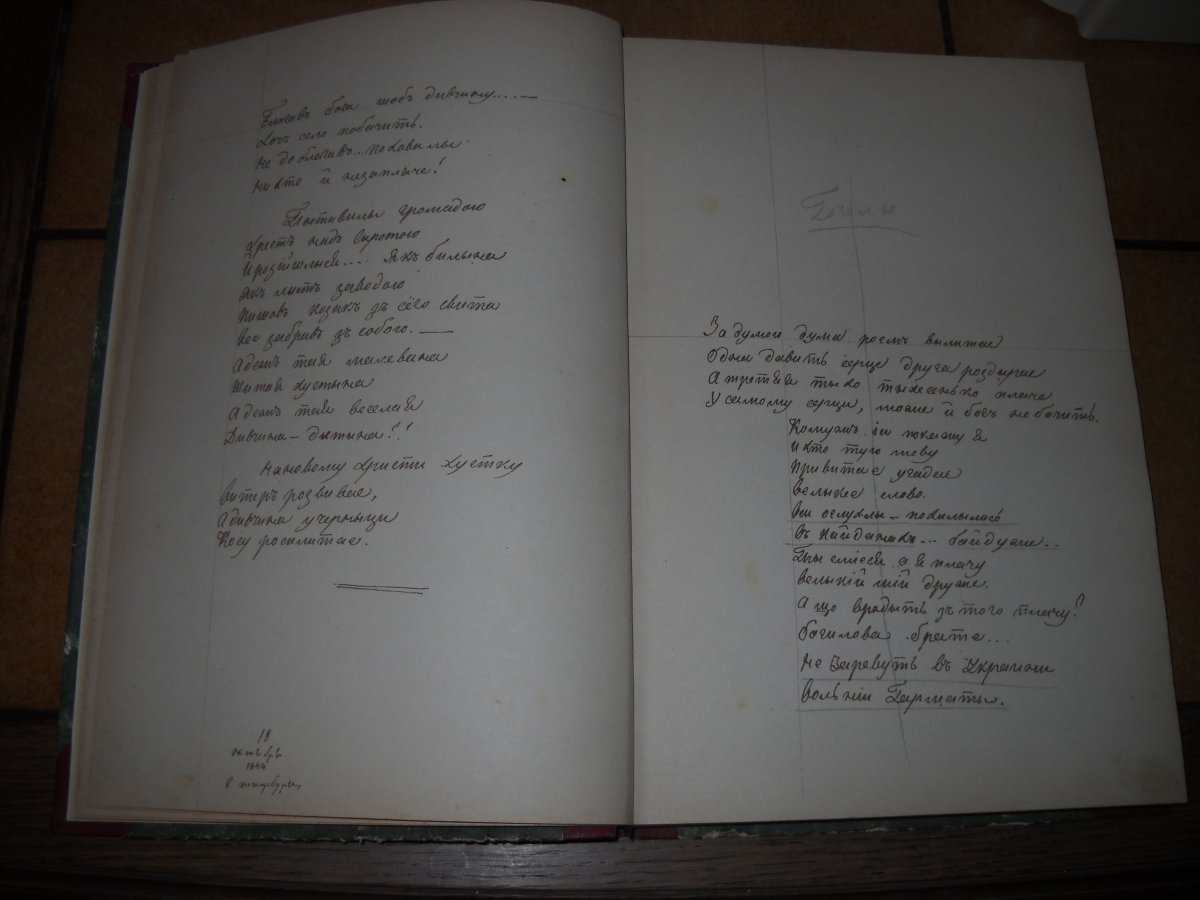 Благавъ бога щобъ дивчину.... —
Хочь село побачить.
Не до благавъ.. поховалы
Ни хто й незаплаче!
Поставылы громадою
Хрестъ надъ сыротою
Й розійшлыся.... Якъ былына
Якъ лыстъ заводою
Пишовъ козакъ зъ сёго свита
Все забравъ зъ собою. —
А дежъ тая малевана
Шытая хустына
А дежъ тая веселая
Дивчина – дытына?!
На новому христи хустку
витеръ розвивае,
А дивчина у черныци
Косу росплитае.
18
Октября
1844
С. Петербургъ
Гоголю
За думою дума роемъ вилитае
Одна давить серце друга роздырае
А третяя тыхо тыхесенько плаче
У самому серци, може й богъ не бачить.
Комужъ іи покажу я
И хто тую мову
Привитае угадае
Велыкее слово.
Вси оглухлы – похилылись
Въ кайданахъ... байдуже..
Ты сміесся а я плачу
Велыкій мій друже.
А що вродыть зъ того плачу?
богилова брате...
Не заревуть въ Украини
вольніи Гарматы.